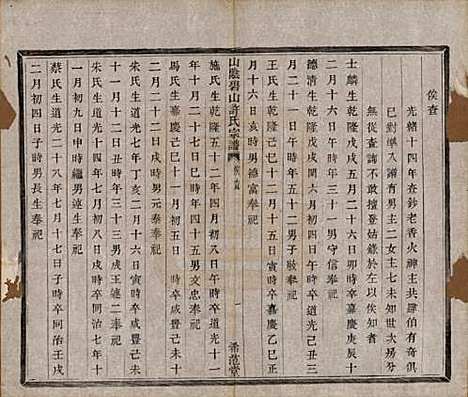 俟查
光緒十四年查鈔老香火神主共肆伯有奇俱
已對準入譜有男主二女主七未知世次房分
無從查詢不敢擅登姑錄於左以俟知者
士麟生乾隆戊戌二月二十六日卯時卒嘉慶庚辰十
月二十一日亥時卒三十一男守信奉祀
德清生乾隆戊戌閏六月初八日寅時卒道光己丑三
月十一日辰時卒五十二男子敏奉祀
王氏生乾隆己巳十二月十五日寅時卒嘉慶乙巳正
月十六日亥時男德富奉祀
山陰碧山許氏宗譜
希范堂
施氏生乾隆五十二年四月初四日寅時卒道光十一
年十月二十二日巳時卒四十五男文忠奉祀
馬氏生嘉慶己巳十一月初五日 時卒咸豐己未十
二月二十二日戌時男元泰奉祀
朱氏生道光七年丁亥二月十六日寅時卒咸豐己未
十一月十二日丑時卒三十三男成玉璉二奉祀
朱氏生道光十四年七月初八日戌時卒同治七年十
一月初九日申時繼男連生奉祀
蔡氏生道光二十八年七月十七日子時卒同治壬戌
二月初四日子時男長生奉祀